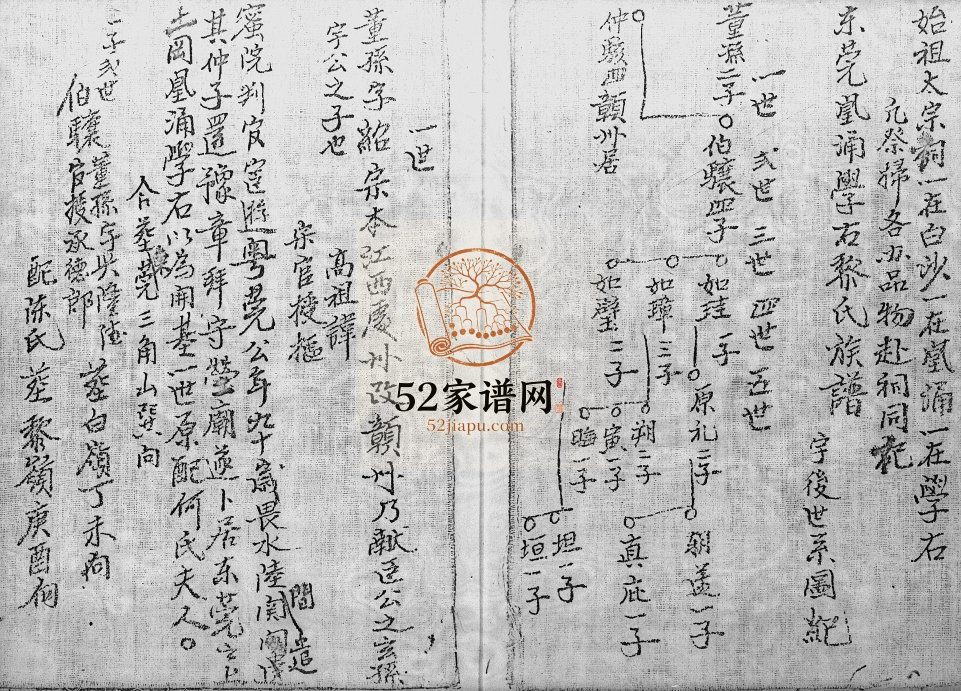 始祖太宗祠一在白沙一在凰涌一在學右
凡祭掃各办品物赴祠同祀
东莞凰涌學右黎氏族譜
字後世系圖紀
一世 弍世 三世 四世 五世
董孫二子
伯驥四子
仲駿西贛州居
如珪一子
如璋三子
如璧二子
原礼二子
朔二子
寅一子
晦一子
朝 一子
真庇一子
坦一子
垣一子
一世
董孫字紹宗本江西虔州改贛州乃獻廷公之玄孫
宇公之子也 高祖諱
宋官授樞
蜜院判官宦遊粤莞公年九十嵗畏水陸間関遣
其仲子還豫章拜守塋廟遂卜居东莞
土岡凰涌學右以為開基一世原配何氏夫人
合塟莞三角山巽向
一子弍世
伯驥董孫 塟白嶺丁未向
官授承德郎
配陈氏 塟黎嶺庚酉向
52家谱网
52jiapu.com